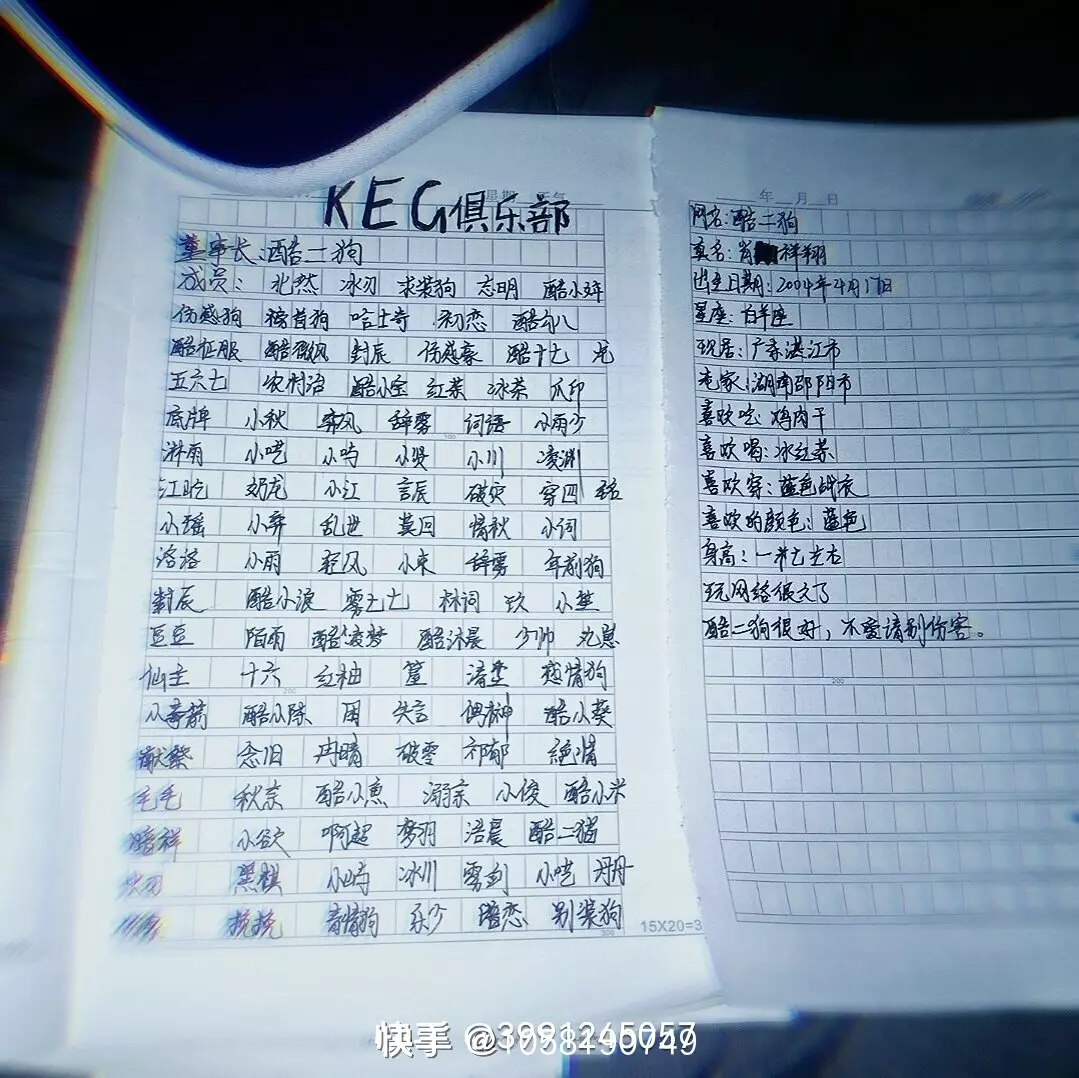 KEG俱乐部
董事长:酷二狗
成员: 北然 冰刃 求装狗 志明 酷小妹
伤感狗 稽首狗 哈士奇 初恋 酷八
酷征服 酷微风 封辰 伤感豪 酷十七 光
五六七 农村治 酷小宝 红茶 冰茶 爪印
底牌 小秋 弃风 辞雾 词语 小雨少
淋雨 小呓 小鸣 小贤 小川 凌渊
江屹 奶龙 小江 言辰 破灾 穿四
小瑶 小弃 乱世 莫回 惜秋 小词
洛洛 小雨 轻风 小束 辞雾 年前狗
封辰 酷小浪 雾七七 林词 玖 小楚
豆豆 陌雨 酷凌梦 酷沐晨 少帅 丸崽
仙主 十六 红柚 清楚 感情狗
酷小陈 困 失言 偶神 酷小葵
献祭 念旧 冉晴 破雾 祁郁 绝情
毛毛 秋奈 酷小意 溺奈 小俊 酷小米
酷祥 小欲 啊超 梦羽 浯晨 酷二猫
黑棋 小崎 冰川 雾剑 小呓 丹丹
挽挽 音情狗 乐少 暗恋 别装狗
15X20=3
年 月 日
网名:酷二狗
真名:肖 祥翔
出生日期:2004年4月17日
星座:白羊座
现居:广东湛江市
老家:湖南邵阳市
喜欢吃:鸡肉干
喜欢喝:冰红茶
喜欢穿:蓝色战衣
喜欢的颜色:蓝色
身高:一米七左右
玩网络很久了
酷二狗很好,不爱请别伤害。
快手